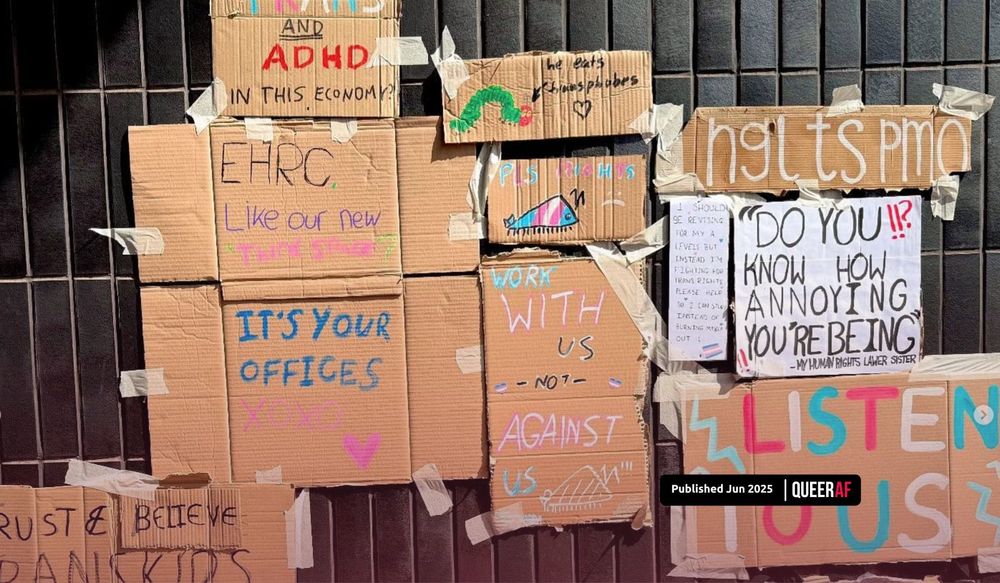 TRANS
AND
ADHD
IN THIS ECONOMY?
he eats
transphobes
EHRC.
Like our new
"Third Spaces"?
IT'S YOUR
OFFICES
XOXO
PLS
WORK
WITH
US
- NOT -
AGAINST
US
ngl ts pmo
I SHOULD
BE REVISING
FOR MY A
LEVELS BUT
INSTEAD I'M
FIGHTING FOR
TRANS RIGHTS
PLEASE HELP
SO I CAN STUDY
INSTEAD OF
BURNING MYSELF
OUT
"DO YOU !!?
KNOW HOW
ANNOYING
YOU'RE BEING"
- MY HUMAN RIGHTS LAWER SISTER
LISTEN
TO US
RUST & BELIEVE
KIDS
Published Jun 2025 | QUEERAF